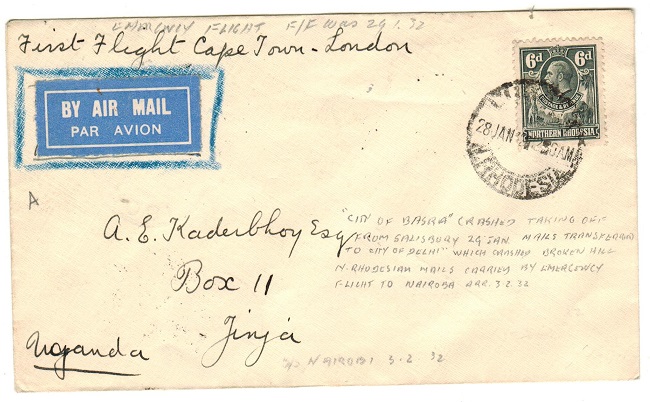 EMERGENCY FLIGHT F/F WAS 29.1.32
First Flight Cape Town - London
6d 6d
NORTHERN RHODESIA
BY AIR MAIL
PAR AVION
28 JAN
N. RHODESIA
A
A. E. Kaderbhoy Esq
Box 11
Jinja
Uganda
"CITY OF BASRA" CRASHED TAKING OFF
FROM SALISBURY 29 JAN. MAILS TRANSFERRED
TO "CITY OF DELHI" WHICH CRASHED BROKEN HILL
N. RHODESIAN MAILS CARRIED BY EMERGENCY
FLIGHT TO NAIROBI ARR. 3.2.32
NAIROBI 3.2.32